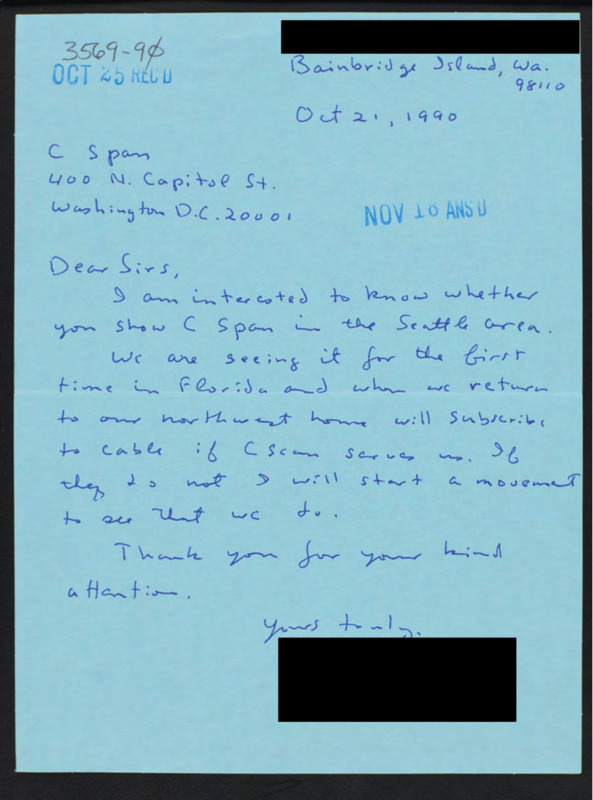 3569-90
OCT 25 REC'D
Bainbridge Island, Wa.
98110
Oct 21, 1990
C Span
400 N. Capitol St.
Washington D.C. 20001
NOV 16 ANS'D
Dear Sirs,
I am interested to know whether
you show C Span in the Seattle area.
We are seeing it for the first
time in Florida and when we return
to our northwest home will subscribe
to cable if C Scan serves us. If
they do not I will start a movement
to see that we do.
Thank you for your kind
attention.
Yours truly,